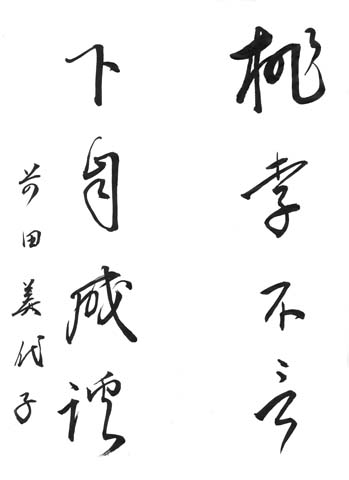 桃李不言
下自成蹊
前田美代子